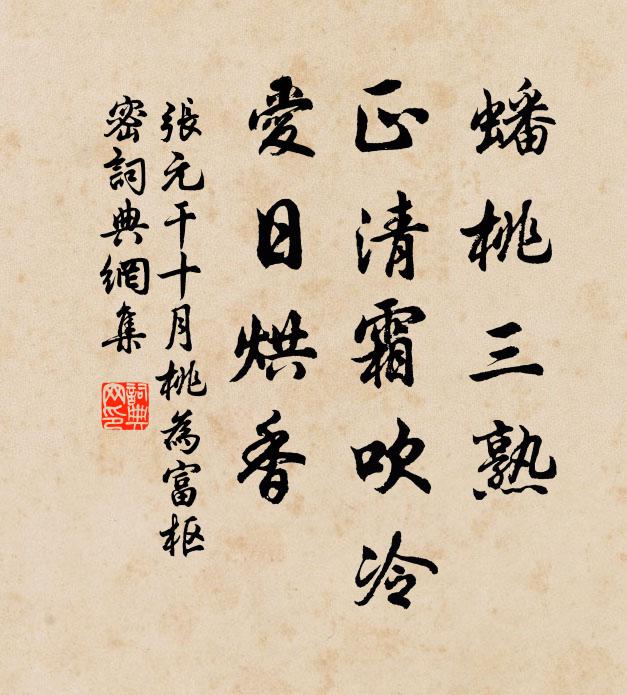 蟠桃三熟
正清霜吹冷
愛日烘香
張元干十月桃為富枢
密詞典網集
詞典网印